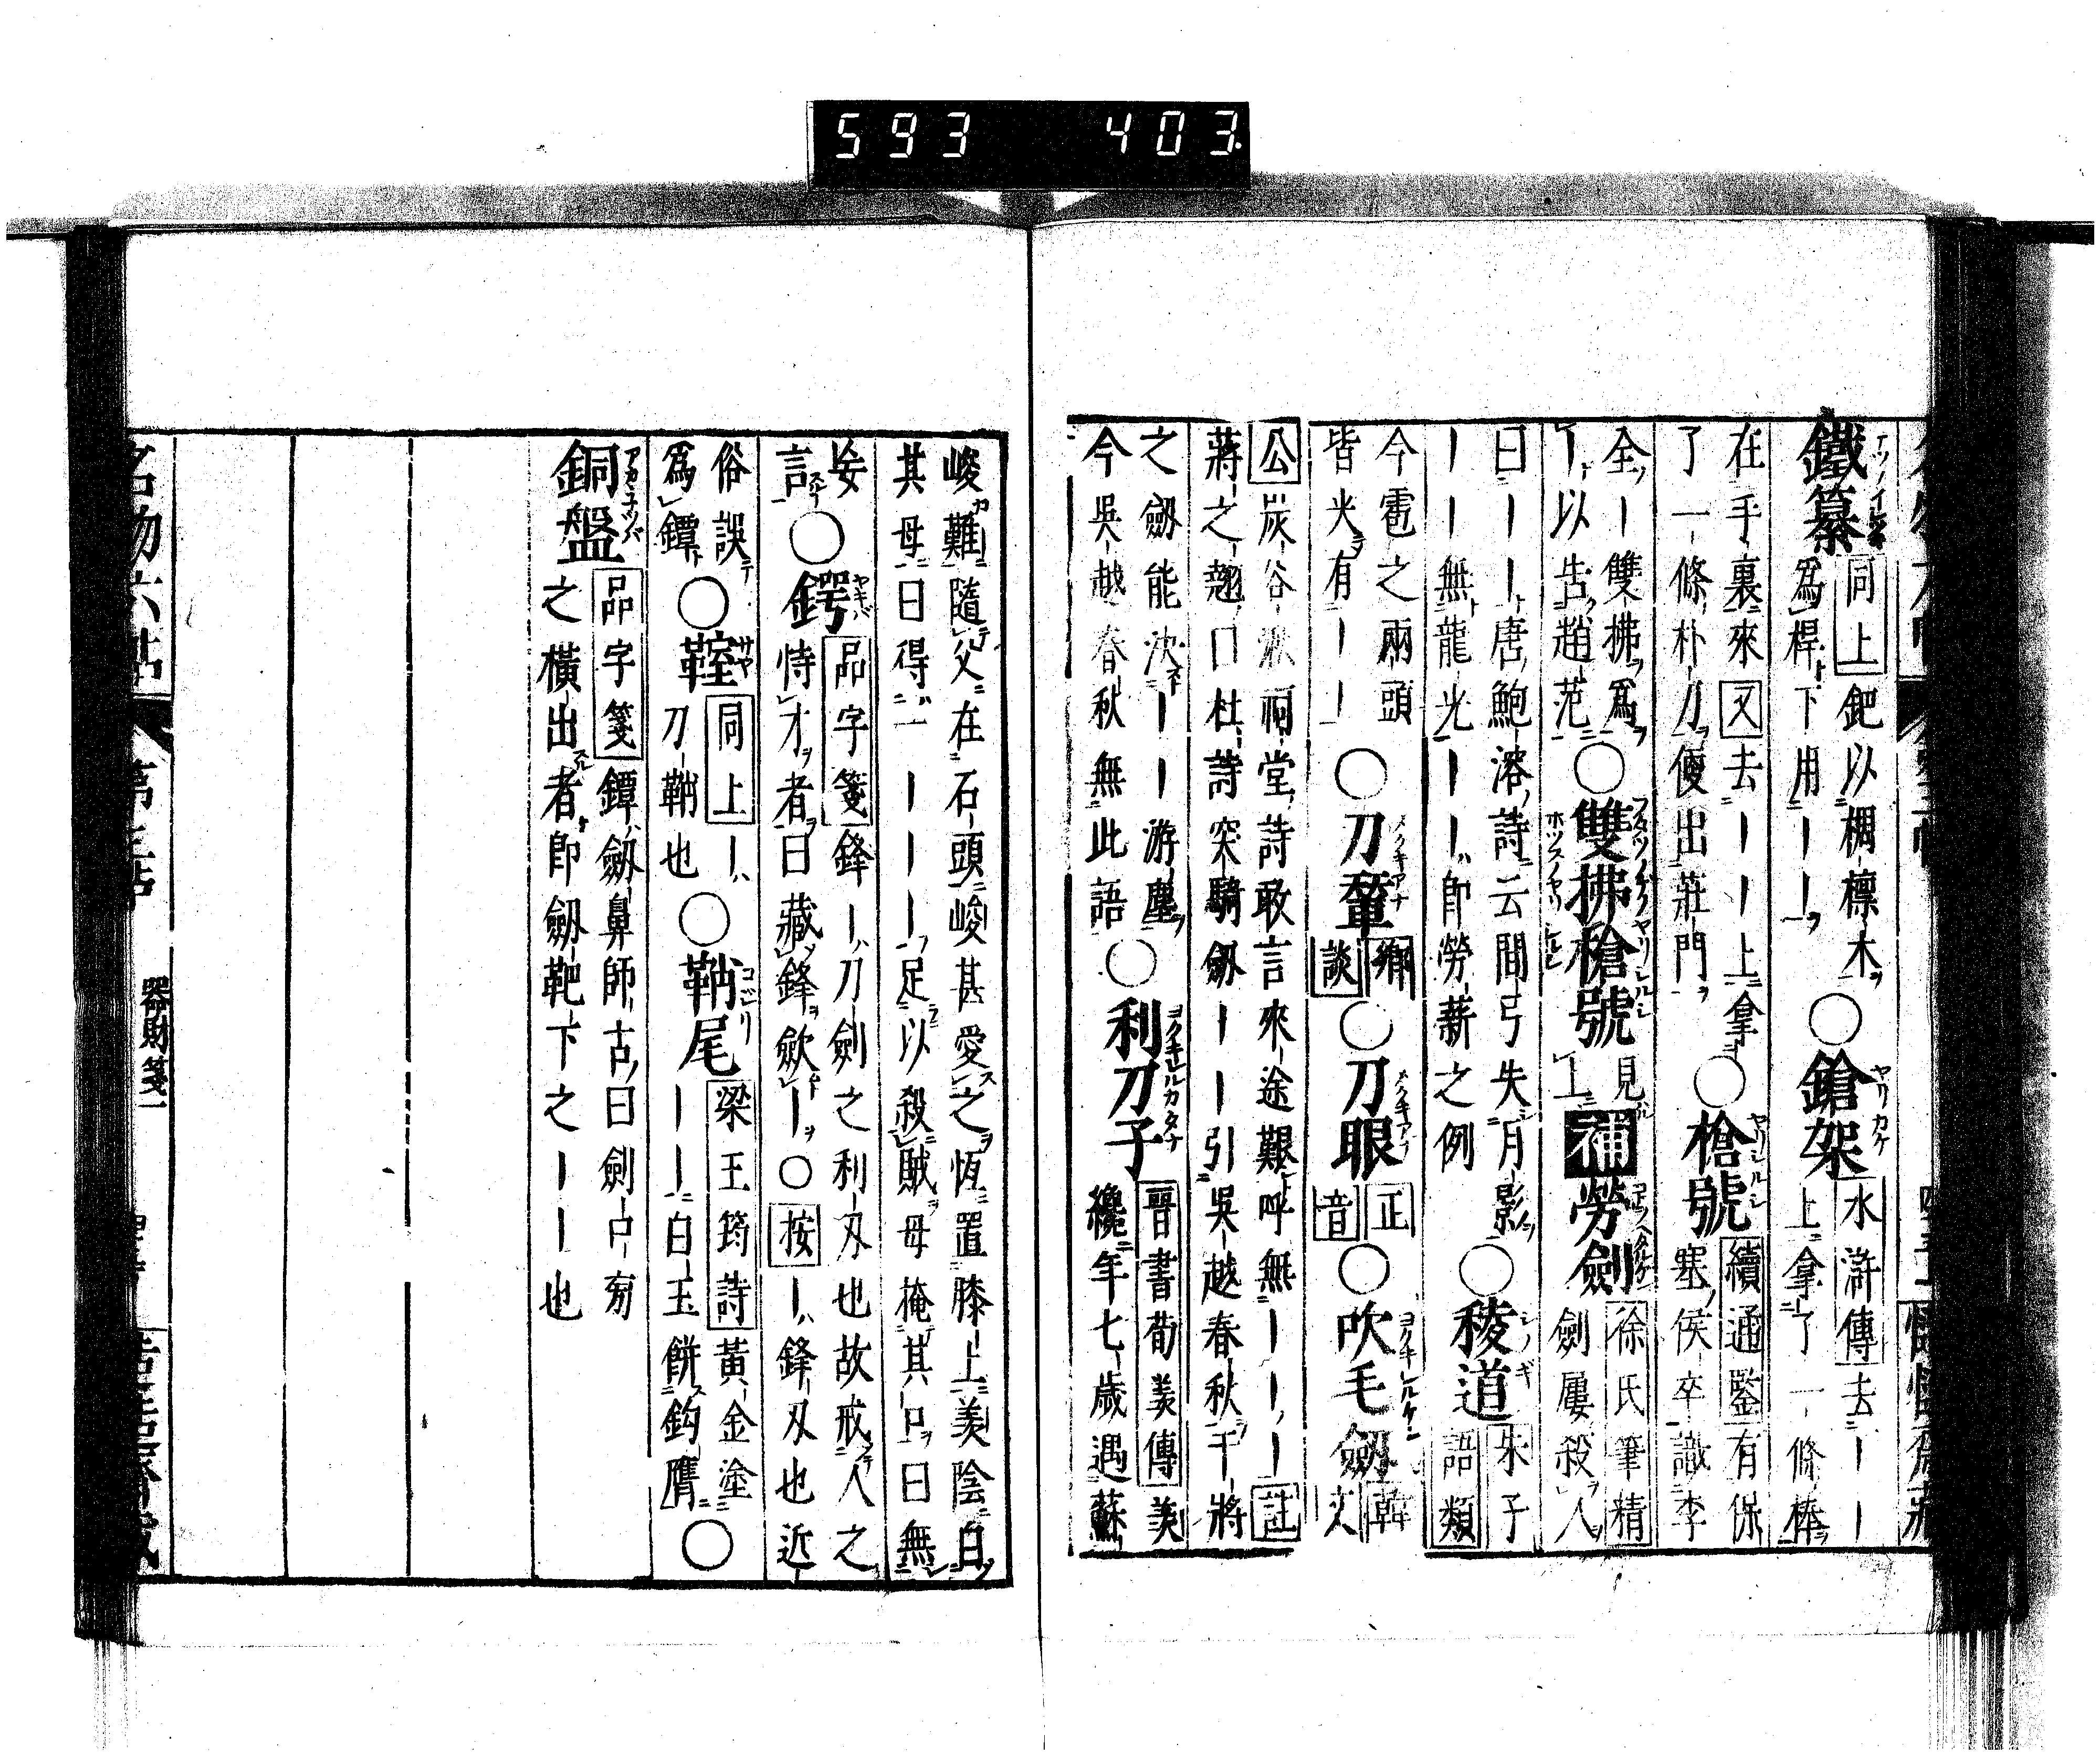 593 403
鐵纂 同上 鈀以椆檩木
爲桿下用｜｜ ○鎗架 水滸傳 去｜｜
上拿了一條棒
在手裏來 又 去｜｜上拿
了一條朴刀便出莊門 ○槍號 續通鑒 有保
塞侯卒識李
全｜雙拂爲
｜以告趙范 ○雙拂槍號 見
上 補 勞劍 徐氏筆精
劍屢殺人
曰｜｜｜唐鮑溶詩云間弓失月影
｜｜｜無龍光｜｜｜即勞薪之例 ○稜道 朱子
語類
今雹之兩頭
皆尖有｜｜｜ ○刀䡟 鄉
談 ○刀眼 正
音 ○吹毛劔 韓
文
公炭谷湫祠堂詩敢言來途艱呼無｜｜｜註
蔣之翹曰杜詩突騎劔｜｜｜引吳越春秋干將
之劔能決｜｜｜游塵
今吳越春秋無此語 ○利刀子 晋書荀羨傳 羨
纔年七歳遇蘇
峻難隨父在石頭峻甚愛之恆置膝上羨陰白
其母曰得一｜｜｜足以殺賊母掩其口曰無
妄
言 ○鍔 品字箋 鋒｜刀劍之利刄也故戒人之
恃才者曰藏鋒歛｜○按｜鋒刄也近
俗誤
爲鐔 ○鞘 同上｜
刀鞘也 ○鞘尾 梁王筠詩 黃金塗
｜｜白玉餅鈎膺 ○
銅盤 品字箋 鐔劔鼻師古曰劍口旁
之横出者即劔靶下之｜｜也
名物六帖 第三帖 器財箋一